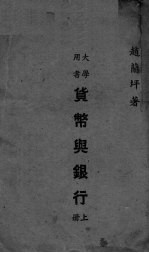 趙蘭坪著
大學用書
貨幣與銀行
上册